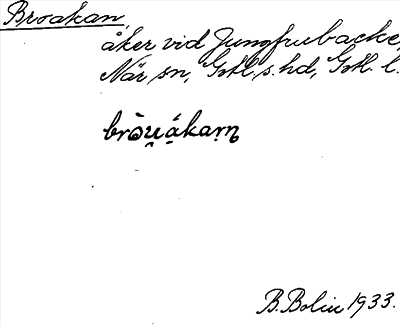 Broakan,
åker vid Jungfrubacke,
När sn, Gotl. s. hd, Gotl. l.
bròu̯ạ́kaṃ
B. Bolin 1933.